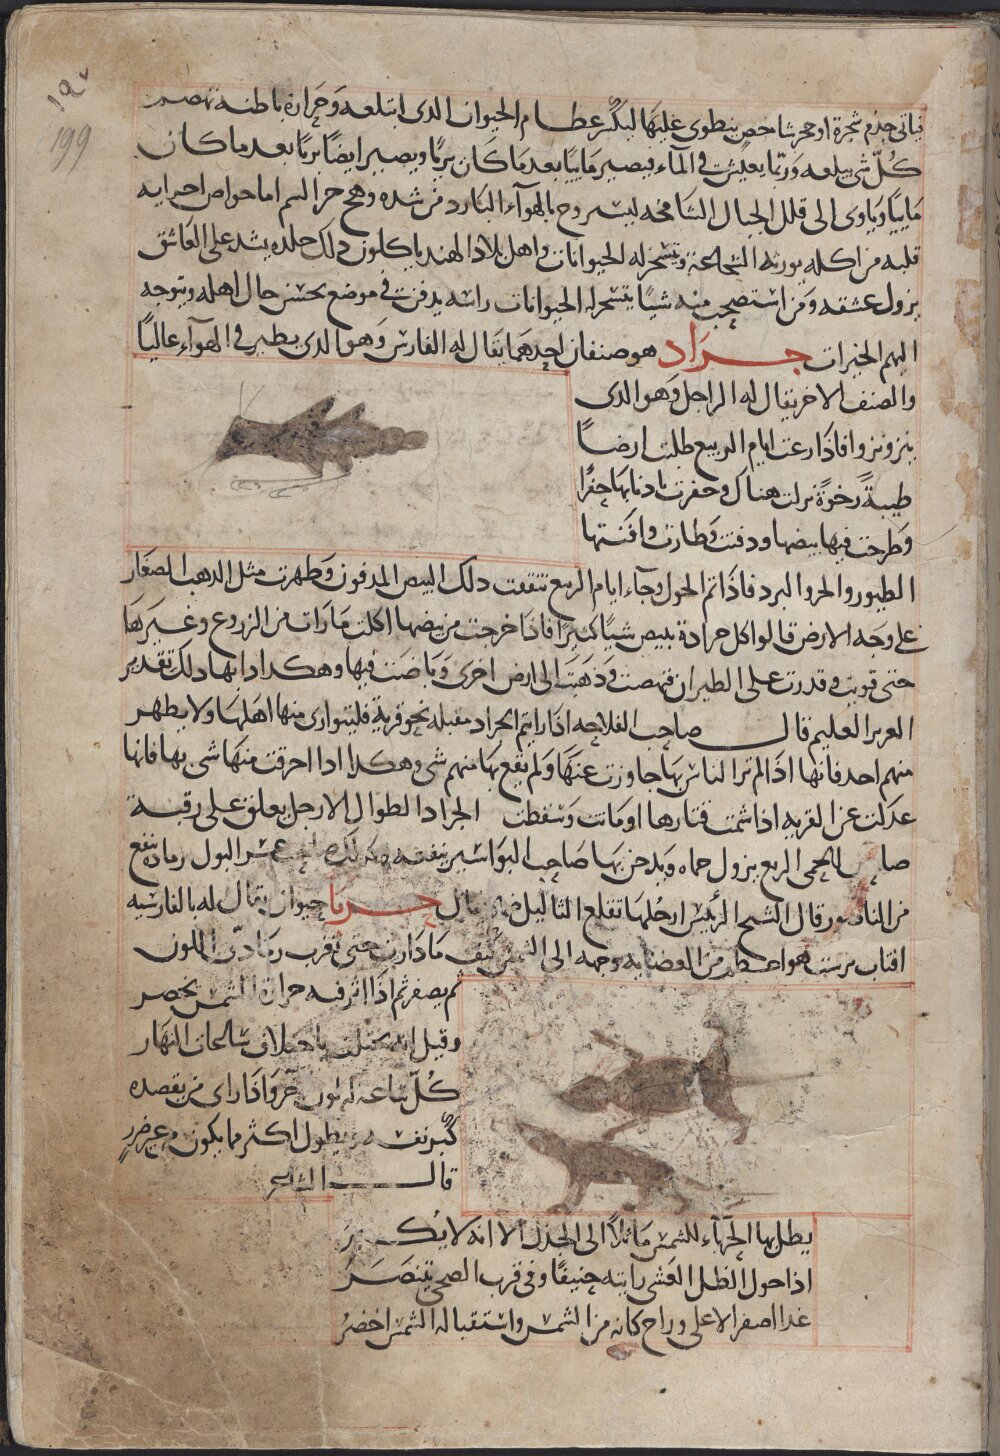 ١٩٧
199
فياتى جذم شجرة او حجر شاخص ينطوى عليها ليكسر عظام الحيوان الذى ابتلعه وحرارة باطنه تهضم
كل شى يبلعه وربما يعيش فى المآء فيصير مائيا بعدما كان بريا ويصير ايضا بريا بعد ما كان
مائيا وياوى الى قلل الجبال الشامخه ليستروح بالهوآء البارد من شده وهج حر السم اما خواص اجزايه
قلبه من اكله يورثه الشجاعة وتتسخر له الحيوانات واهل بلاد الهند ياكلون ذلك جلده يشد على العاشق
يزول عشقه ومن استصحب منه شيا يتسخر له الحيوانات راسه يدفن فى موضع يحسن حال اهله ويتوجه
اليهم الخيرات جراد هو صنفان احدهما يقال له الفارس وهو الذى يطير فى الهوآء عاليا
والصنف الاخر يقال له الراجل وهو الذى
ينزو نزوا فاذا رعت ايام الربيع طلبت ارضا
طيبة رخوة نزلت هناك وحفرت باذنابها حفرا
وطرحت فيها بيضها ودفنت وطارت وافنتها
الطيور والحر والبرد فاذا تم الحول وجآء ايام الربيع تفقعت ذلك البيض المدفون وظهرت مثل الذهب الصغار
على وجه الارض قالوا كل جرادة يبيض شيا كثيرا فاذا خرجت من بيضها اكلت ما رات من الزروع وغيرها
حتى قويت وقدرت على الطيران فنهضت وذهبت الى ارض اخرى وباضت فيها وهكذا دابها ذلك تقدير
العزيز العليم قال صاحب الفلاحه اذا رايتم الجراد مقبله نحو قرية فليتوارى منها اهلها ولا يظهر
منهم احد فانها اذا لم تر الناس بها جاوزت عنها ولم يقع بها منهم شى وهكذا اذا احرقت منها شى بها فانها
عدلت عن القريه اذا شمت قتارها او ماتت وسقطت الجراد الطوال الارجل يعلق على رقبة
صاحب الحمى الربع يزول حماه ويدخن بها صاحب البواسير ينفعه وكذلك عسر البول رماده ينفع
من الناصور قال الشيخ الرئيس ارجلها تقلع الثاليل قال حربا حيوان يقال له بالفارسيه
افتاب پرست هو اعظم من العضايه وجهه الى الشمس كيف ما دارت حتى تغرب رمادى اللون
ثم يصفر ثم اذا اثر فيه حرارة الشمس يخضر
وقيل انه يختلف باختلاف ساعات النهار
كل ساعة له لون آخر واذا راى من يقصده
كبر نفسه ويطول اكثر مما يكون من غير ضرر
قال الشاعر
يظل بها الحربآء للشمس ماثلا الى الجذل الا انه لا يكبر
اذا حول الظل العشى رايته حنيفا وفى قرب الضحى يتنصر
غدا اصفر الاعلى وراح كانه من الشمس واستقباله الشمس اخضر